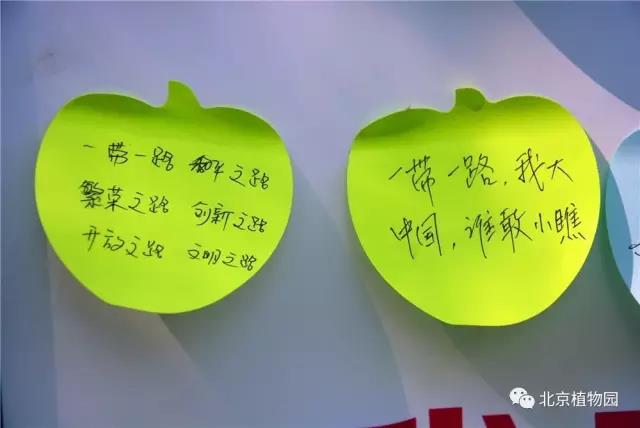 一带一路 和平之路
繁荣之路 创新之路
开放之路 文明之路
一带一路，我大
中国，谁敢小瞧
北京植物园